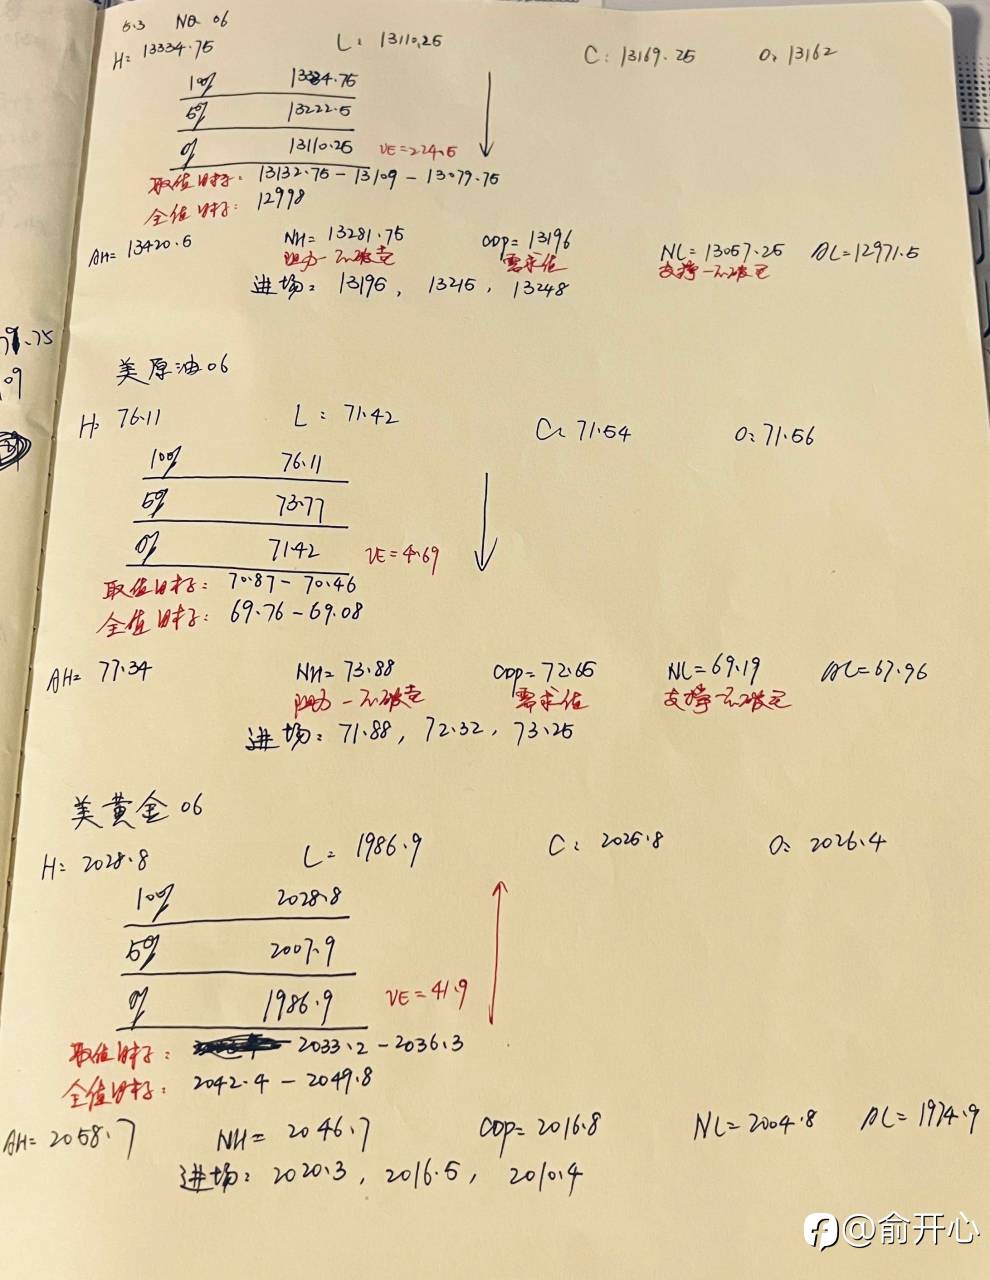 5.3 NQ 06
H: 13334.75 L: 13110.25 C: 13169.25 O: 13162
100% 13334.75
50% 13222.5
0% 13110.25 VE=224.5
取值目标: 13132.75-13109-13079.75
全值目标: 12998
AH= 13420.5 NH= 13281.75 CDP=13196 NL=13057.25 AL=12971.5
阻力-不破空 需求值 支撑-不破多
进场: 13195, 13215, 13248
美原油06
H: 76.11 L: 71.42 C: 71.54 O: 71.56
100% 76.11
50% 73.77
0% 71.42 VE=4.69
取值目标: 70.87-70.46
全值目标: 69.76-69.08
AH= 77.34 NH=73.88 CDP=72.65 NL=69.19 AL=67.96
阻力-不破空 需求值 支撑-不破多
进场: 71.88, 72.32, 73.25
美黄金06
H: 2028.8 L: 1986.9 C: 2025.8 O: 2026.4
100% 2028.8
50% 2007.9
0% 1986.9 VE=41.9
取值目标: 2033.2-2036.3
全值目标: 2042.4-2049.8
AH= 2058.7 NH= 2046.7 CDP=2016.8 NL=2004.8 AL=1974.9
进场: 2020.3, 2016.5, 2010.4
1.75
09
@俞开心